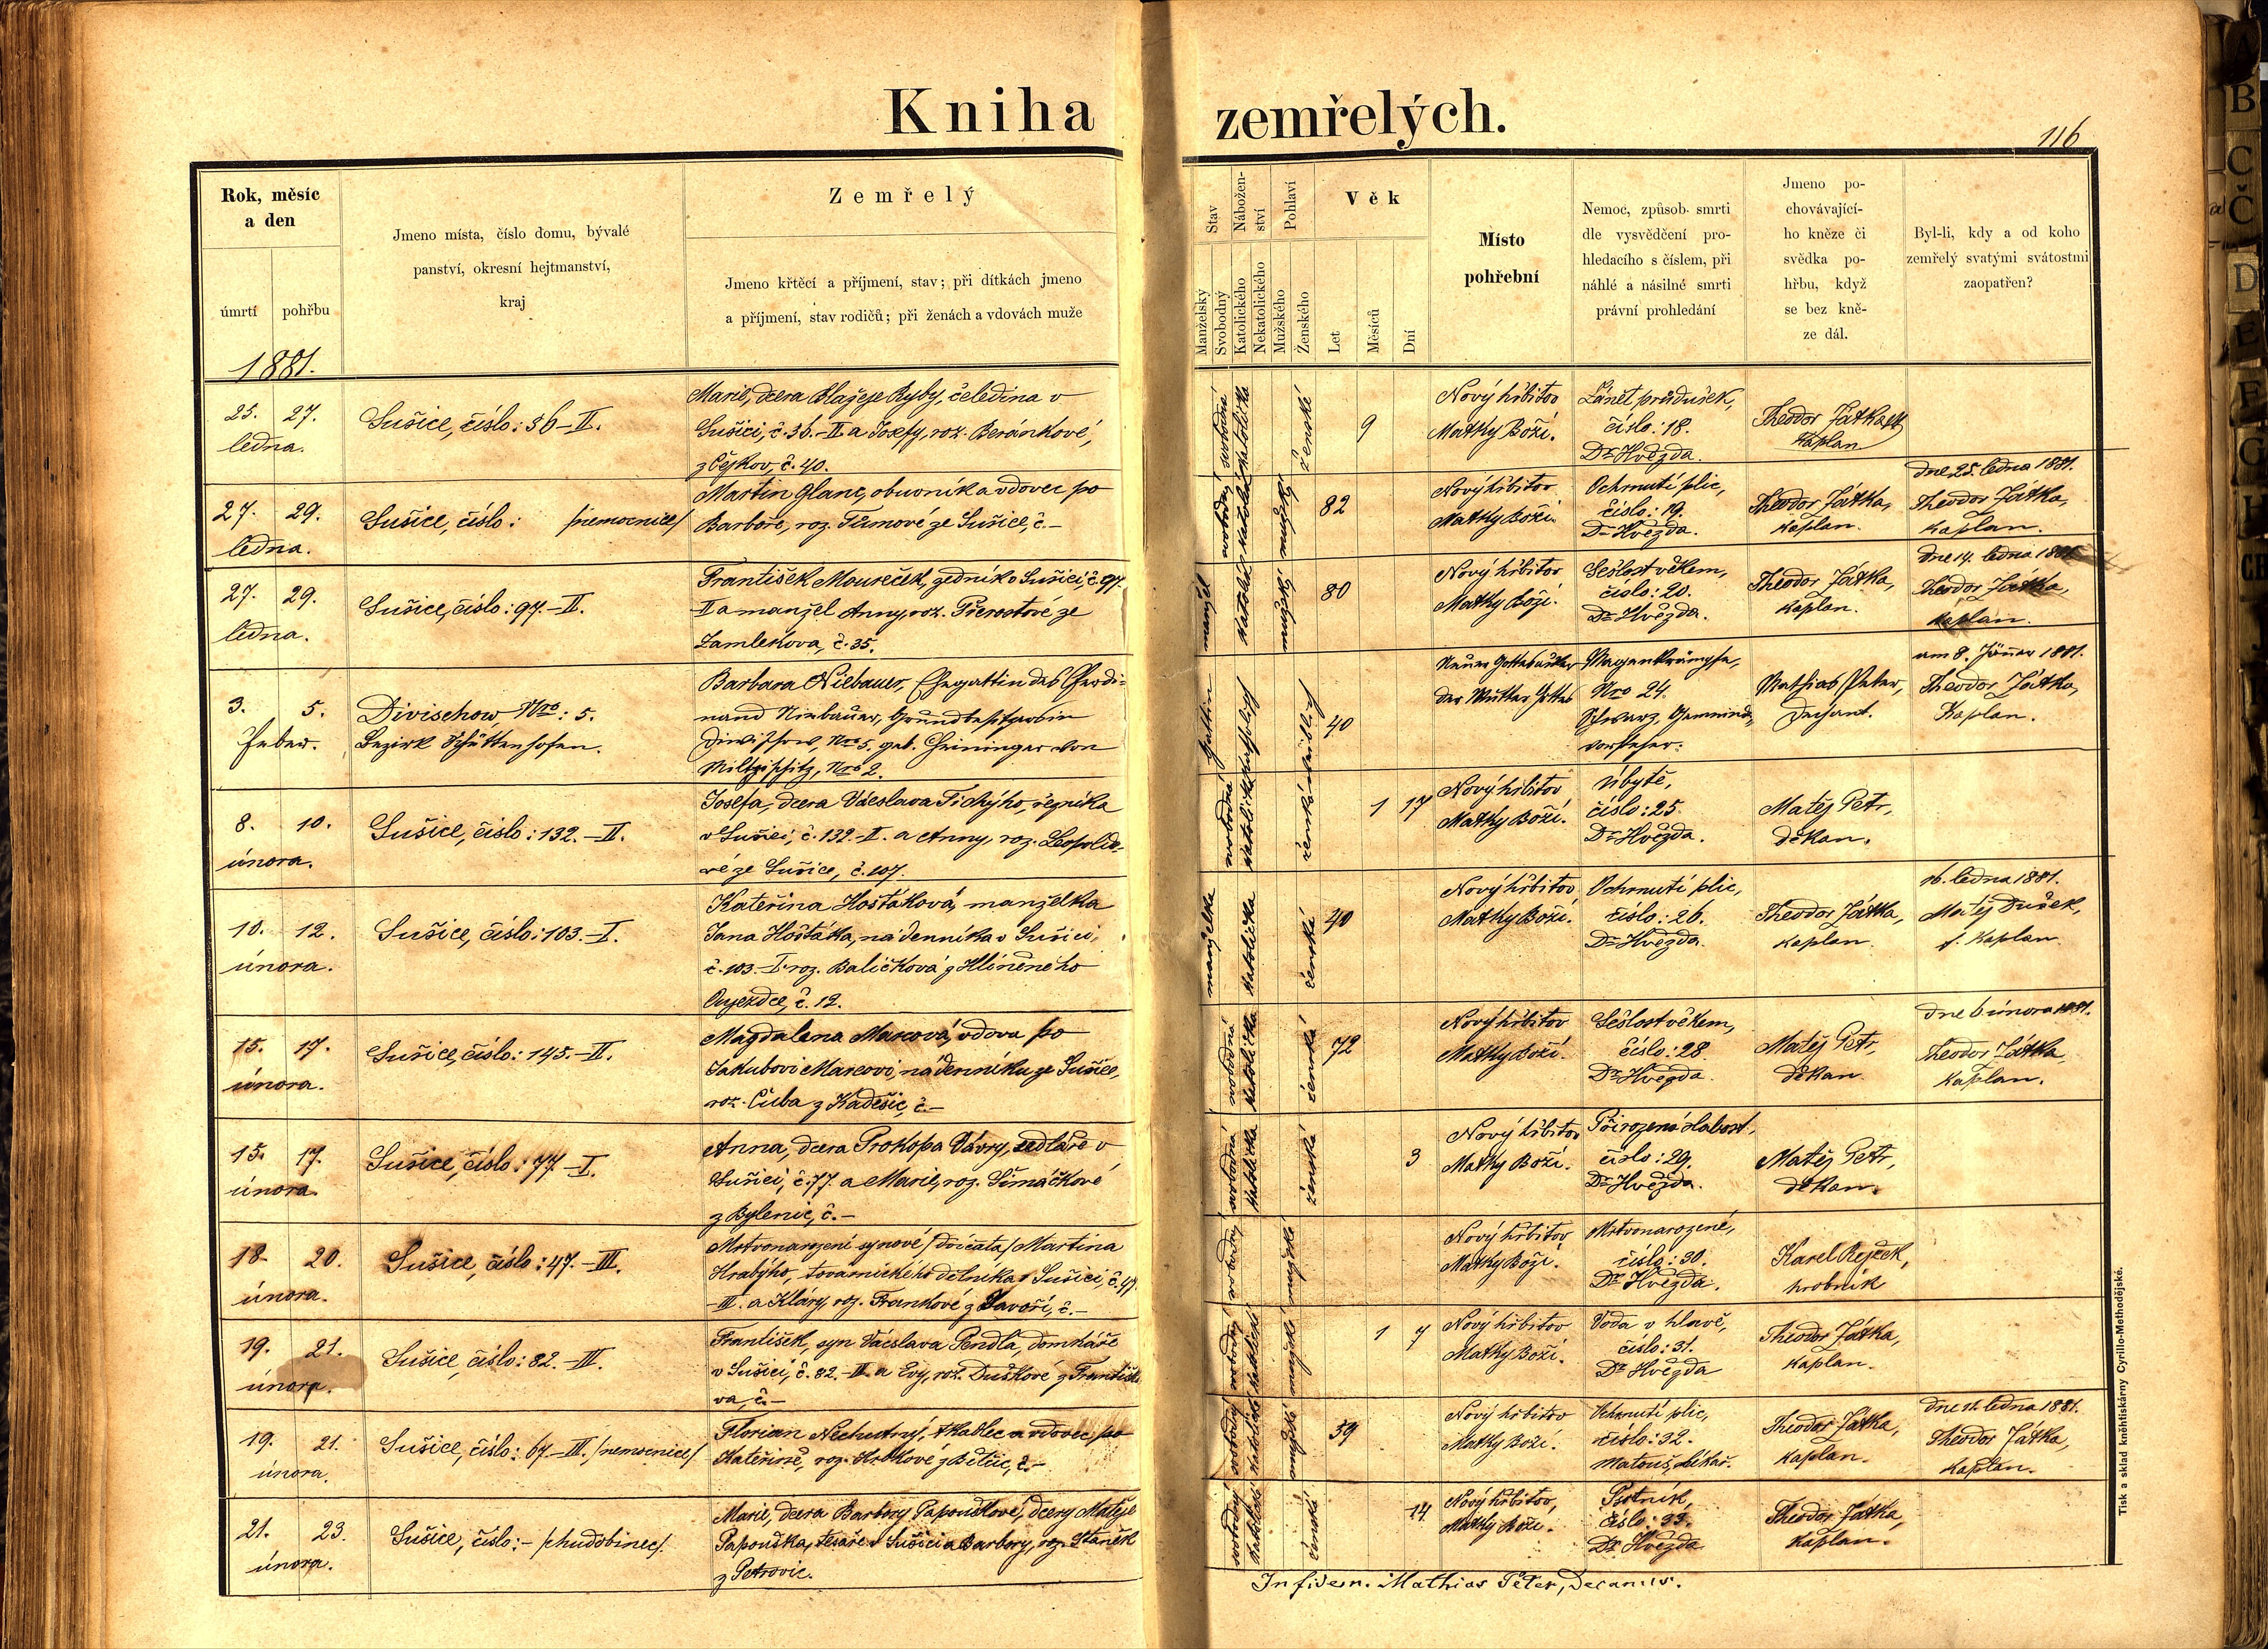 Kniha zemřelých.
116
Rok, měsíc
a den
úmrtí pohřbu
1881.
Jmeno místa, číslo domu, bývalé
panství, okresní hejtmanství,
kraj
Zemřelý
Jmeno křtěcí a příjmení, stav; při dítkách jmeno
a příjmení, stav rodičů; při ženách a vdovách muže
Stav
Manželský
Svobodný
Nábožen-
ství
Katolického
Nekatolického
Pohlaví
Mužského
Ženského
Věk
Let
Měsíců
Dní
Místo
pohřební
Nemoc, způsob smrti
dle vysvědčení pro-
hledacího s číslem, při
náhlé a násilné smrti
právní prohledání
Jmeno po-
chovávající-
ho kněze či
svědka po-
hřbu, když
se bez kně-
ze dál.
Byl-li, kdy a od koho
zemřelý svatými svátostmi
zaopatřen?
25. 27.
ledna.
Sušice, číslo: 36-II.
Marie, dcera Blažeje Ryby, čeledína v
Sušici, č. 36.-II a Josefy, roz. Beránkové,
z Čejkov, č. 40.
svobodná
katolička
ženské
9
Nový hřbitov
Matky Boží.
Zánět průdušek,
číslo: 18.
Dr. Hvězda.
Theodor Játka,
kaplan
27. 29.
ledna.
Sušice, číslo: /nemocnice/
Martin Glanc, obuvník a vdovec po
Barboře, roz. Tůmové ze Sušice, č.-
svobodný
mužský
82
Nový hřbitov
Matky Boží.
Ochrnutí plic,
číslo: 19.
Dr. Hvězda.
Theodor Játka,
kaplan.
dne 25. ledna 1881.
Theodor Játka,
kaplan.
27. 29.
ledna.
Sušice, číslo: 97.-II.
František Moureček, zedník v Sušici, č. 97.
II a manžel Anny, roz. Přerostové ze
Zamlekova, č. 35.
manžel
mužský
80
Nový hřbitov
Matky Boží.
Sešlost věkem,
číslo: 20.
Dr. Hvězda.
Theodor Játka,
kaplan.
dne 14. ledna 1881
Theodor Játka,
kaplan.
3. 5.
Feber.
Divischow, Nro: 5.
Bezirk Schüttenhofen.
Barbara Niebauer, Ehegattin des Ferdi-
nand Niebauer, Grundbesitzers in
Diwischow, Nro 5, geb. Greininger von
Miltschitz, Nro 2.
Gattin
katholisch
weiblich
40
Neuer Gottesacker
der Mutter Gottes
Magenkrämpfe,
Nro 24.
Schwarz, Gemeinde-
vorsteher.
Mathias Peter,
Dechant.
am 8. Jänner 1881.
Theodor Játka,
Kaplan.
8. 10.
února.
Sušice, číslo: 132.-II.
Josefa, dcera Václava Tichýho, řezníka
v Sušici, č. 132.-II. a Anny, roz. Leopoldo-
vé ze Sušice, č. 107.
svobodná
katolička
ženská
1 17
Nový hřbitov
Matky Boží.
Úbytě,
číslo: 25.
Dr. Hvězda.
Matěj Petr,
děkan.
10. 12.
února.
Sušice, číslo: 103.-I.
Kateřina Hošťáková, manželka
Jana Hošťáka, nádenníka v Sušici,
č. 103.-I. roz. Baličková z Hliněného
Oujezdce, č. 12.
manželka
katolička
ženská
40
Nový hřbitov
Matky Boží.
Ochrnutí plic,
číslo: 26.
Dr. Hvězda.
Theodor Játka,
kaplan.
16. ledna 1881.
Matěj Dušek,
f. kaplan.
15. 17.
února.
Sušice, číslo: 145.-II.
Magdalena Marcová, vdova po
Jakubovi Marcovi, nádenníku ze Sušice,
roz. Cuba z Kadešic, č.-
svobodná
katolička
ženská
72
Nový hřbitov
Matky Boží.
Sešlost věkem,
číslo: 28.
Dr. Hvězda.
Matěj Petr,
děkan
dne 6 února 1881.
Theodor Játka
kaplan.
15. 17.
února.
Sušice, číslo: 77-I.
Anna, dcera Prokopa Vávry, sedláře v
Sušici, č. 77. a Marie, roz. Šimáčkové
z Bylenic, č.-
svobodná
katolička
ženská
3
Nový hřbitov
Matky Boží.
Přirozená slabost,
číslo: 29.
Dr. Hvězda.
Matěj Petr,
děkan.
18. 20.
února.
Sušice, číslo: 47.-III.
Mrtvonarození synové /dvojčata/ Martina
Hrabýho, továrnického dělníka v Sušici, č. 47.
-III. a Kláry, roz. Frankové z Javoří, č.-
svobodný
mužské
Nový hřbitov
Matky Boží.
Mrtvonarozené,
číslo: 30.
Dr. Hvězda.
Karel Rejžek,
hrobník
19. 21.
února.
Sušice, číslo: 82.-III.
František, syn Václava Pendla, domkáře
v Sušici, č. 82.-III. a Evy, roz. Duškové z Františko-
va, č.-
svobodný
katolické
mužské
1 7
Nový hřbitov
Matky Boží.
Voda v hlavě,
číslo: 31.
Dr. Hvězda
Theodor Játka,
kaplan.
19. 21.
února.
Sušice, číslo: 67-III. /nemocnice/
Florian Nechutný, tkadlec a vdovec po
Kateřině, roz. Hrbkové z Bětic, č.-
svobodný
katolické
mužské
59
Nový hřbitov
Matky Boží.
Ochrnutí plic,
číslo: 32.
Matouš, lékař.
Theodor Játka,
kaplan.
dne 11. ledna 1881.
Theodor Játka,
kaplan.
21. 23.
února.
Sušice, číslo:- /chudobinec/.
Marie, dcera Barbory Papouškové, dcery Matěje
Papouška, tesaře v Sušici a Barbory, roz. Staněk
z Petrovic.
svobodný
katolické
ženská
14
Nový hřbitov,
Matky Boží.
Psotník,
číslo: 33.
Dr. Hvězda
Theodor Játka,
kaplan.
In fidem. Mathias Peter, Decanus.
Tisk a sklad knihtiskárny Cyrillo-Methodějské.